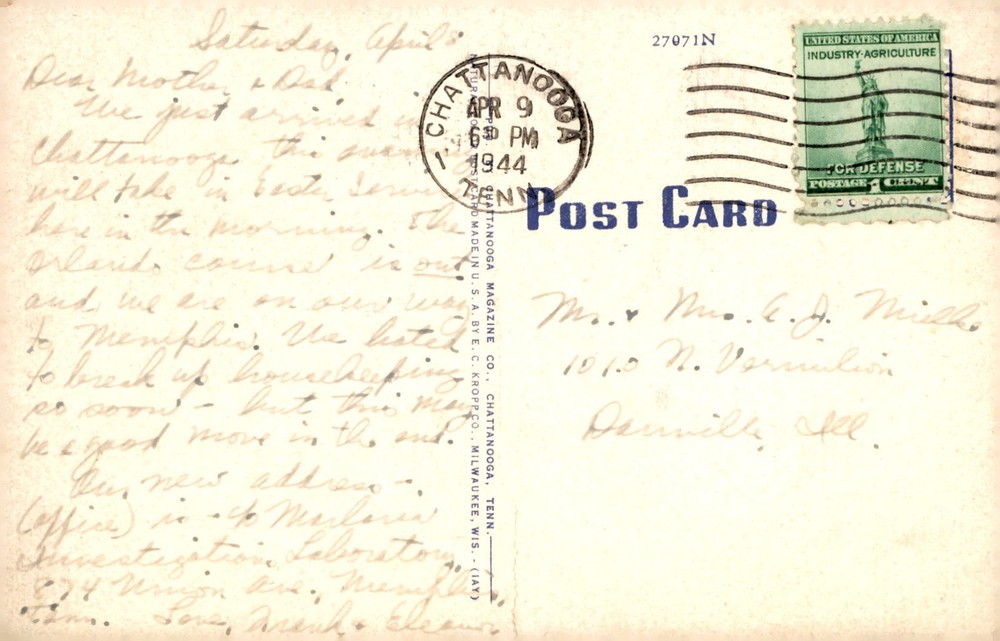 Saturday, April 8
Dear Mother & Dad
We just arrived in
Chattanooga this evening
will take in Easter Services
here in the morning. The
Orlando course is out,
and we are on our way
to Memphis. We hated
to break up housekeeping
so soon - but this may
be a good move in the end.
Our new address -
(office) is - c/o Malaria
Investigation Laboratory,
874 Union Ave., Memphis,
Tenn. Love, Frank & Eleanor
CHATTANOOGA
APR 9
6 PM
1944
TENN.
27071N
UNITED STATES OF AMERICA
INDUSTRY·AGRICULTURE
FOR DEFENSE
POSTAGE 1 CENT
POST CARD
CHATTANOOGA MAGAZINE CO., CHATTANOOGA, TENN.
POSTCARD MADE IN U. S. A. BY E. C. KROPP CO., MILWAUKEE, WIS. - (IAY)
Mr. & Mrs. A. J.
1010 N. Vermilion
Danville, Ill.